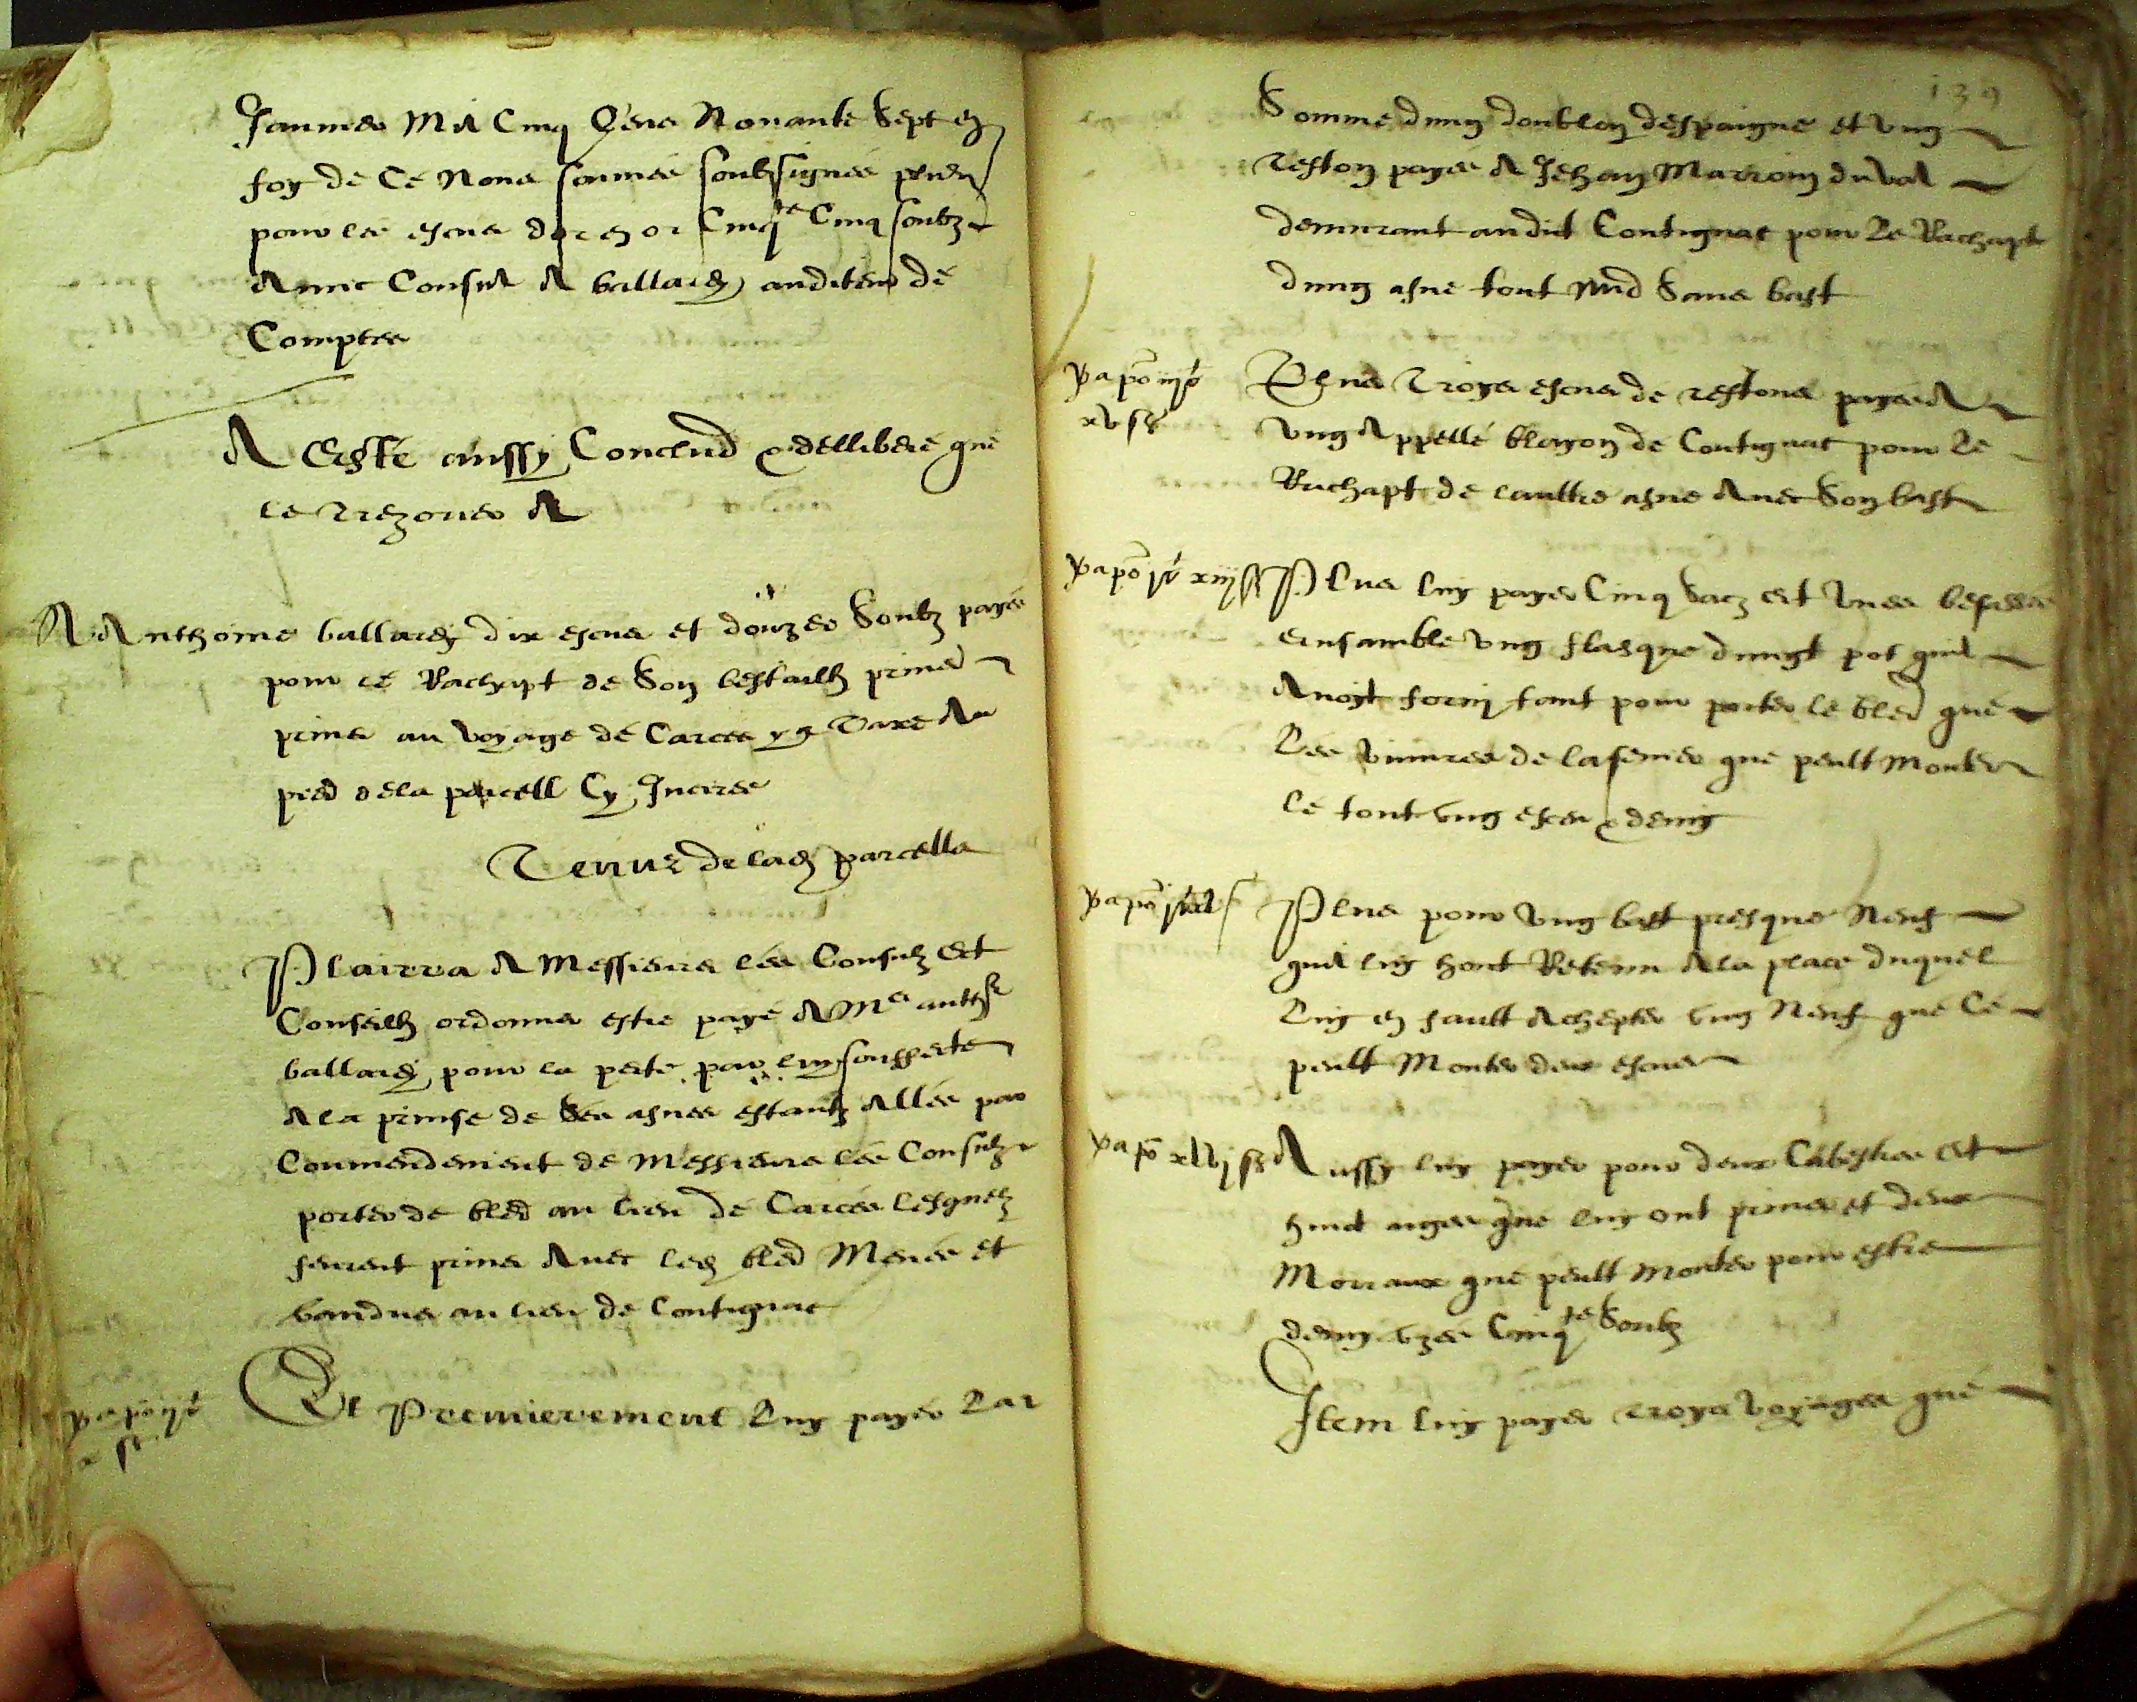 Januier Mil Cinq Cens Nonante Sept en
foy de Ce Nous sommes soubsignés
pour les escus dor en or Cinq.te Cinq soubz
Amic Consul A ballardy auditeur de
Comptes
A Esté aussy Conclud & delliberé que
le Trezorier A
A Anthoine ballardy dix escus et douze Soubz payés
pour le Rachept de Son bestailh
prins au voyage de Carces Taxe Au
pied de la parcell Cy Inseree
Tenur de lad parcella
Plairra A Messieurs les Consulz Et
Conseilh ordonner estre payé A Me anthe
ballardy pour la perte par luy soufferte
A la prinse de Ses asnes estantz Allés par
Commendement de Messieurs les Consulz
porter de bled au lieu de Carces lesquelz
feurent prins Auec led bled Menés et
vandus au lieu de Contignac
Et Premierement Luy payer La
139
Somme dung doublon despaigne et vng
teston payés A Jehan Marroin du Val
demurant audict Contignac pour Le Rachapt
dung asne tout nud Sans bast
Plus Troys escus de testons payés A
vng Appellé blayon de Contignac pour Le
Rachapt de laultre asne Auec Son bast
xv ss
Plus luy payer Cinq Sacz Et Vnes besasses
Ensamble vng flasque dungt pot quil
Auoyt forny tant pour porter le bled que
Les viuures de la que peult Monter
le tout vng escu & demy
xiij ss
Plus pour vng bast presque Neuf
quil luy hont Retenu A la place duquel
Luy en fault Achepter vng Neuf que Ce
peult Monter deux escus
Aussy luy payer pour deux Cabestres Et
huict que luy ont prins et deux
Morraux que peult Monter pour estre
demy vzés Cinq.te Soubz
Item luy payer troys voyages que